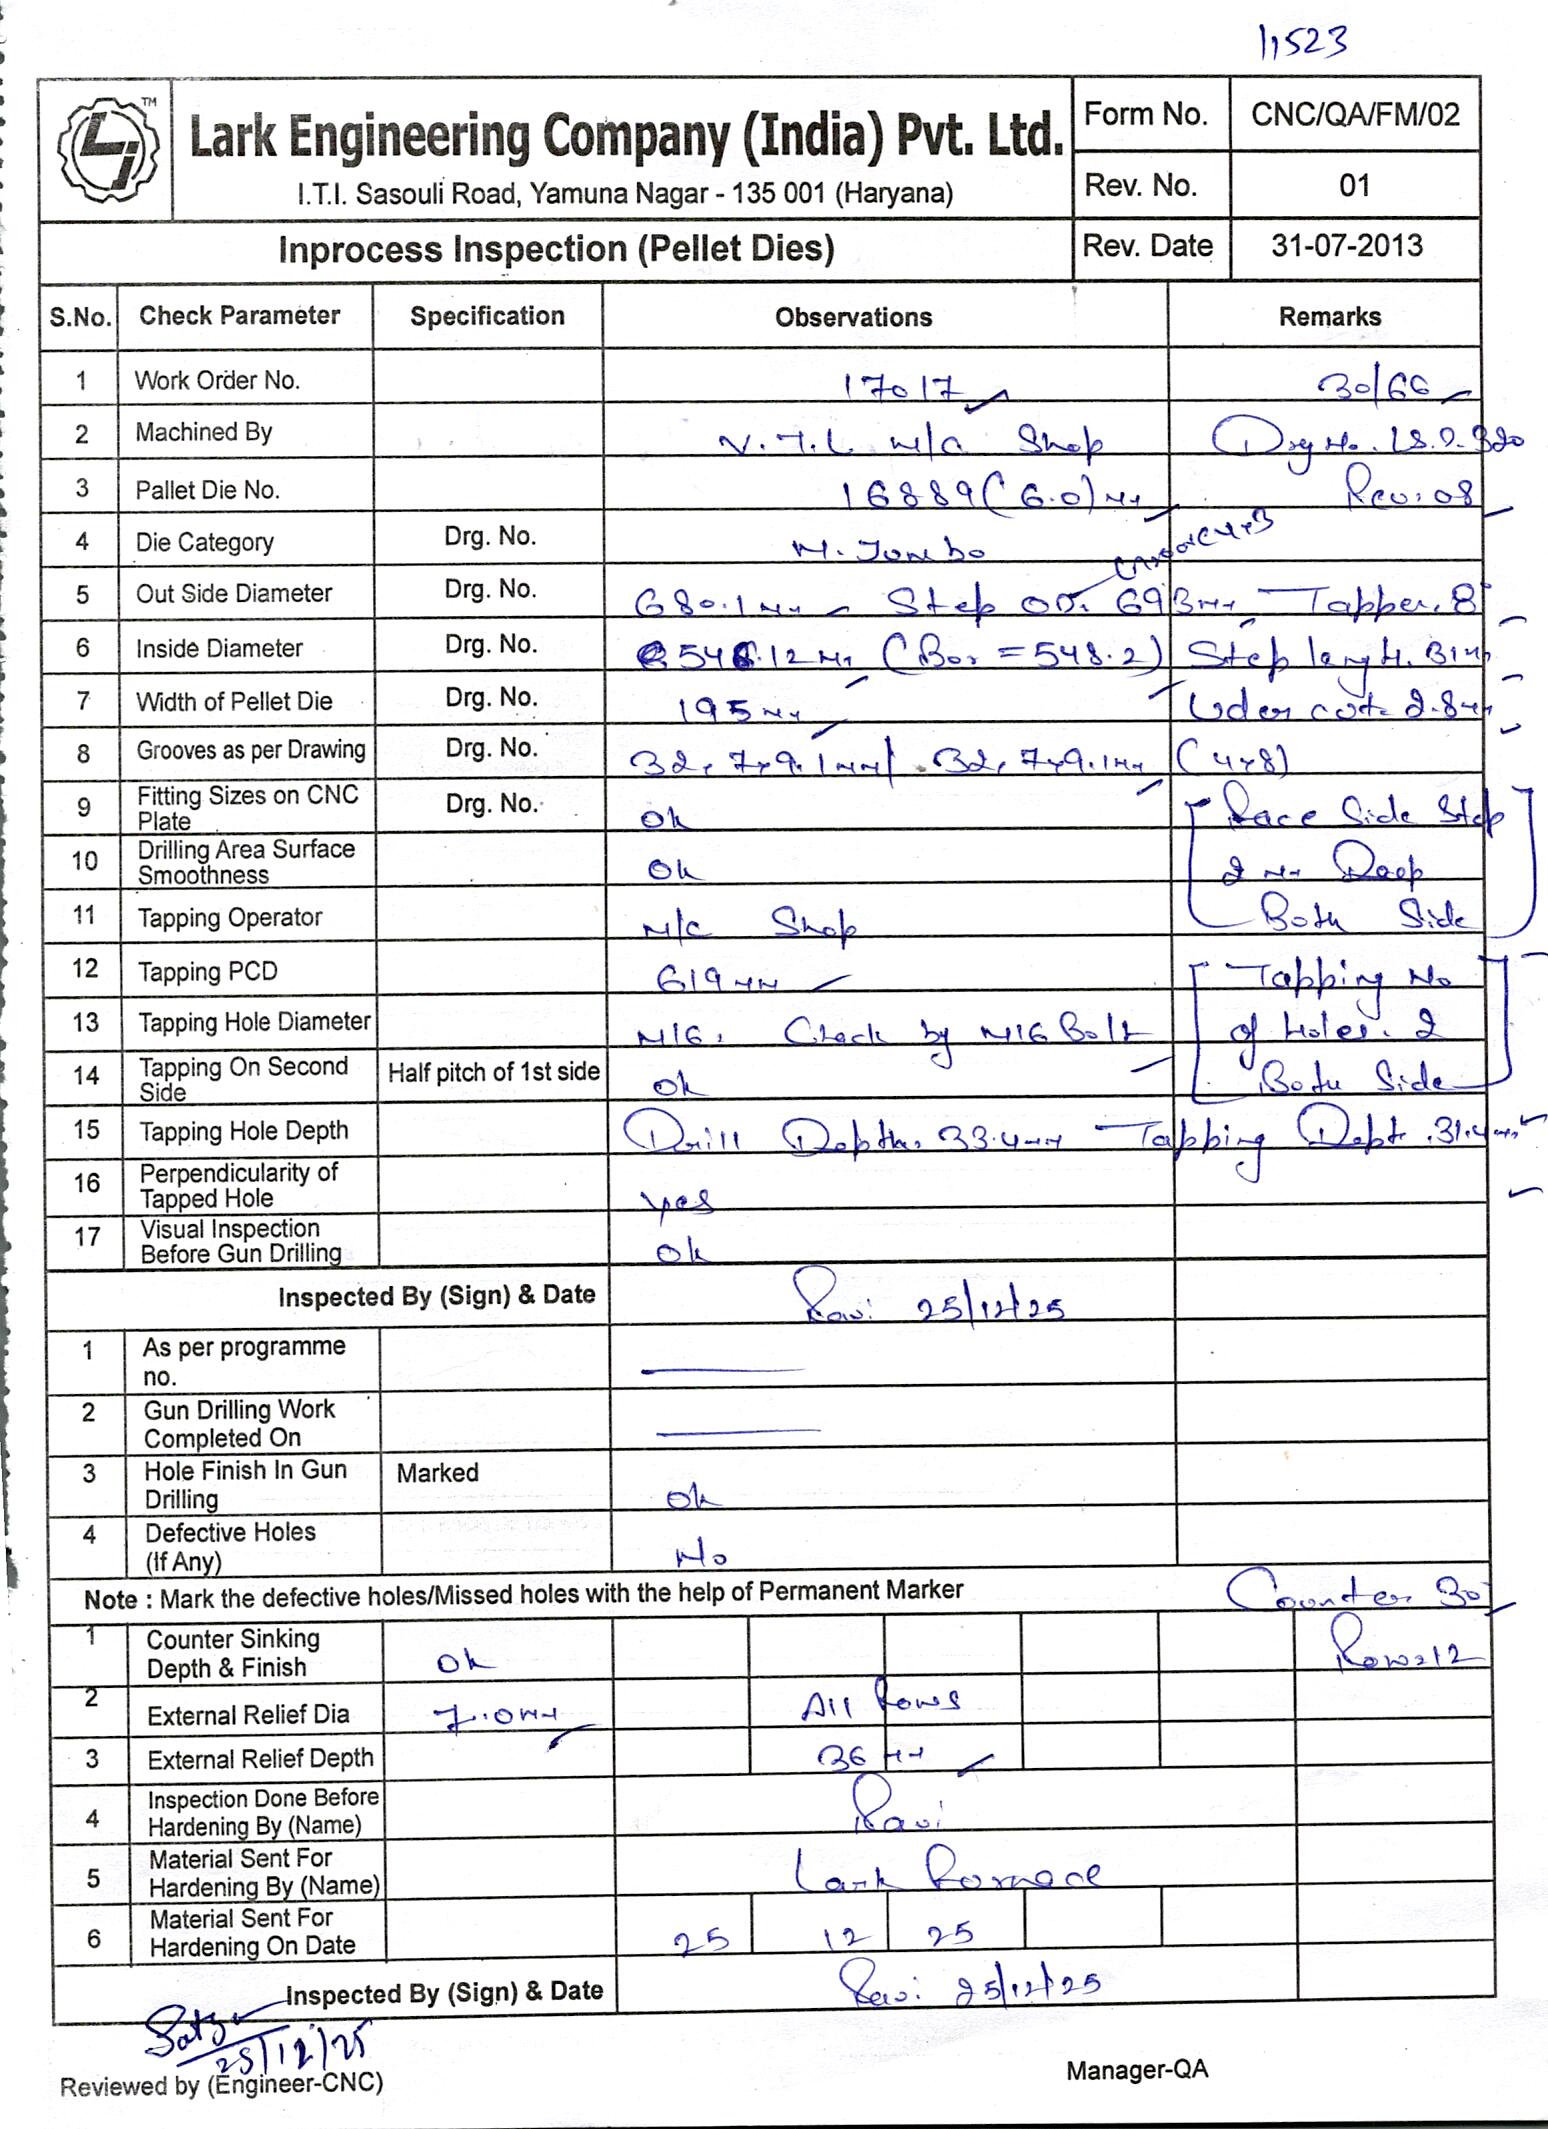 11523
LJ TM
Lark Engineering Company (India) Pvt. Ltd.
I.T.I. Sasouli Road, Yamuna Nagar - 135 001 (Haryana)
Form No. CNC/QA/FM/02
Rev. No. 01
Inprocess Inspection (Pellet Dies) Rev. Date 31-07-2013
S.No. Check Parameter Specification Observations Remarks
1 Work Order No. 17017 30/66
2 Machined By V.T.L M/C Shop Drg No. LS.2.320
3 Pallet Die No. 16889 (6.0) mm Rev: 08
4 Die Category Drg. No. M. Jumbo
5 Out Side Diameter Drg. No. 680.1mm Step OD. 693mm Tapper. 8°
6 Inside Diameter Drg. No. 546.12mm (Bor = 548.2) Step lengh. 31mm
7 Width of Pellet Die Drg. No. 195mm Uder cut. 2.8mm
8 Grooves as per Drawing Drg. No. 32, 7x9.1mm/ 32, 7x9.1mm (4x8)
9 Fitting Sizes on CNC Plate Drg. No. Ok [Race Side Step
10 Drilling Area Surface Smoothness Ok 2mm Deep
11 Tapping Operator M/C Shop Both Side]
12 Tapping PCD 619mm [Tapping No
13 Tapping Hole Diameter M16, Check by M16 Bolt of Holes. 2
14 Tapping On Second Side Half pitch of 1st side Ok Both Side]
15 Tapping Hole Depth Drill Depth. 33.4mm Tapping Dept. 31.4mm
16 Perpendicularity of Tapped Hole yes
17 Visual Inspection Before Gun Drilling Ok
Inspected By (Sign) & Date Ravi 25/12/25
1 As per programme no.
2 Gun Drilling Work Completed On
3 Hole Finish In Gun Drilling Marked Ok
4 Defective Holes (If Any) No
Note : Mark the defective holes/Missed holes with the help of Permanent Marker Counter 30°
1 Counter Sinking Depth & Finish Ok Rows=12
2 External Relief Dia 7.0mm All Rows
3 External Relief Depth 36mm
4 Inspection Done Before Hardening By (Name) Ravi
5 Material Sent For Hardening By (Name) Lark Fornace
6 Material Sent For Hardening On Date 25 12 25
Inspected By (Sign) & Date Ravi 25/12/25
25/12/25
Reviewed by (Engineer-CNC) Manager-QA